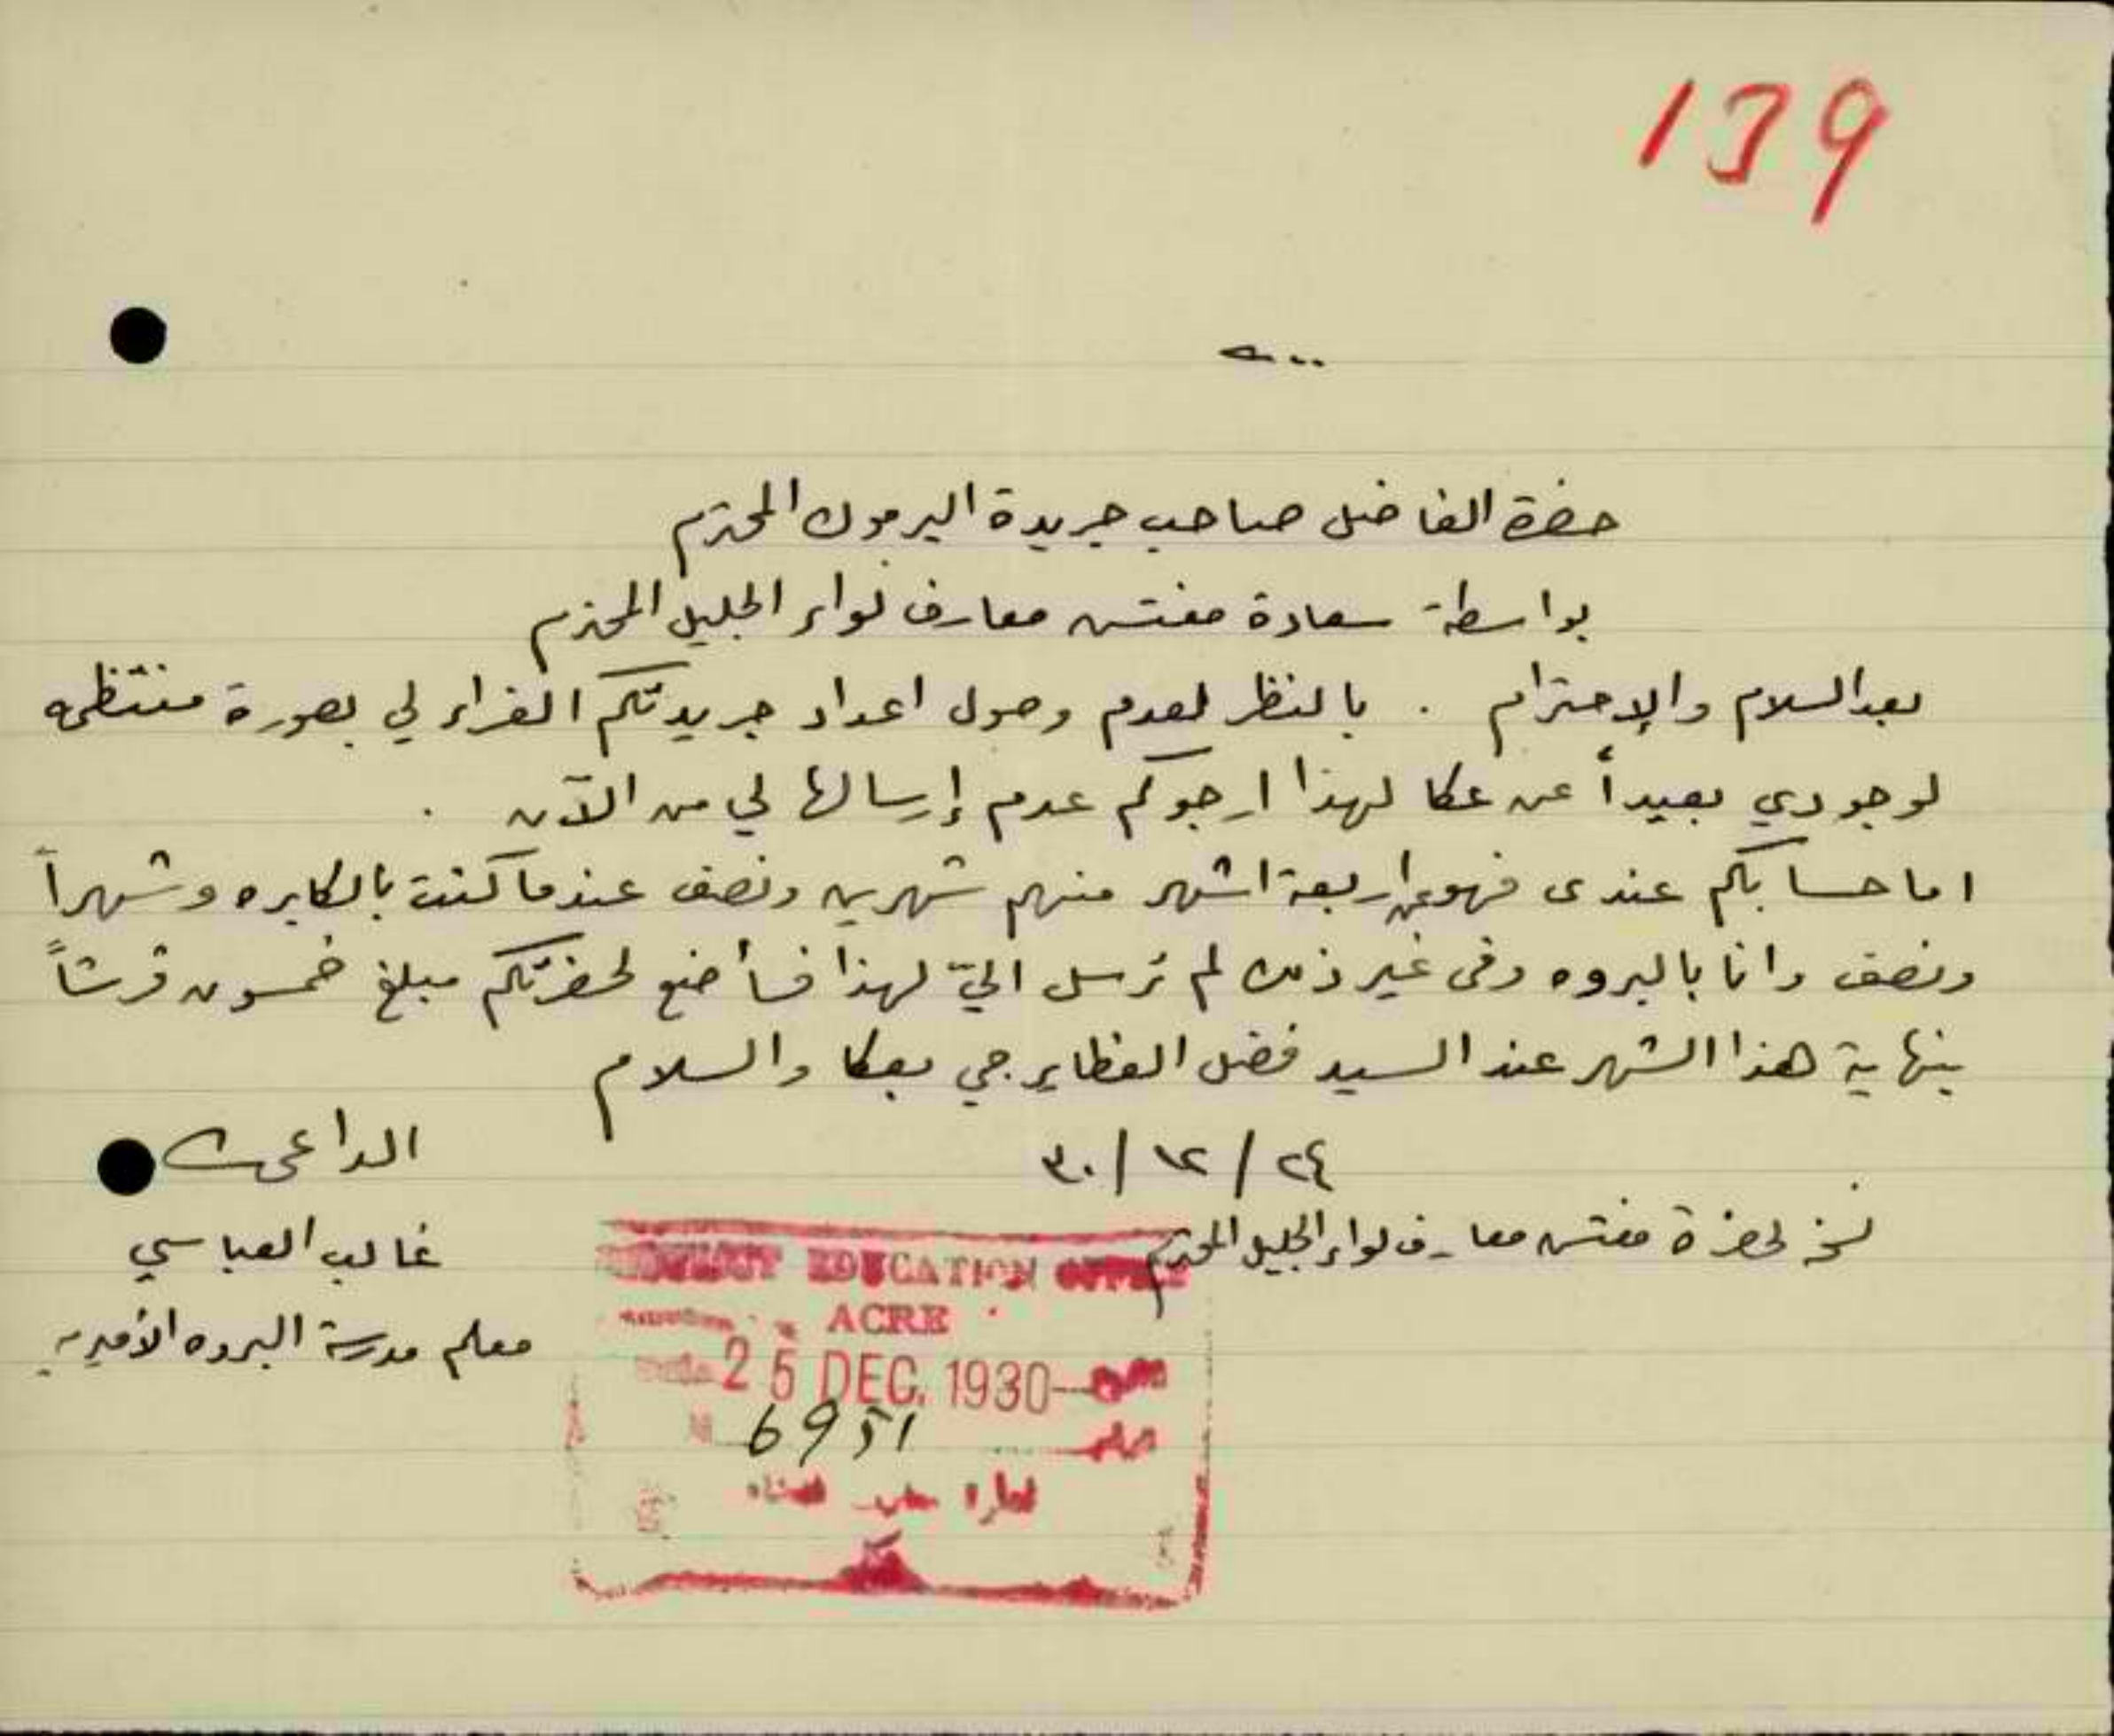 139
حضرة الفاضل صاحب جريدة اليرموك المحترم
بواسطة سعادة مفتش معارف لواء الجليل المحترم
بعد السلام والإحترام . بالنظر لعدم وصول اعداد جريدتكم الغراء لي بصورة منتظمه
لوجودي بعيداً عن عكا لهذا ارجوكم عدم إرسالها لي من الآن .
اما حسابكم عندى فهو عن اربعة اشهر منهم شهرين ونصف عندما كنت بالكابره وشهراً
ونصف وانا بالبروه وفى غير ذلك لم ترسل اليّ لهذا فسأضع لحضرتكم مبلغ خمسون قرشاً
بنهاية هذا الشهر عند السيد فضل الفطايرجي بعكا والسلام
٢٤ / ١٢ / ٣٠
الداعي
نسخة لحضرة مفتش معارف لواء الجليل المحترم
غالب العباسي
معلم مدرسة البروه الأميرية
EDUCATION OFFICE
ACRE
25 DEC. 1930